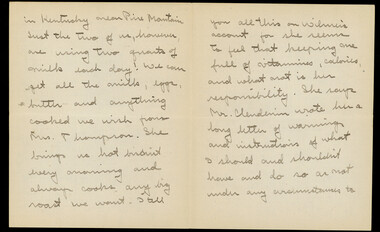 in Kentucky around Pine Mountain
Just the two of us, however
are using two quarts of
milk each day! We can
get all the milk, eggs,
butter and anything
cooked we wish from
Mrs. Thompson. She
brings us hot bread
every morning and
always cooks any big
roast we want. I tell
you all this on Wilmer's
account for she seems
to feel that keeping me
full of vitamines, calories,
and what not is her
responsibility. She says
Mr. Clendenin wrote her a
long letter of warning
and instructions of what
I should and shouldn't
have and do so as not
under any circumstances to